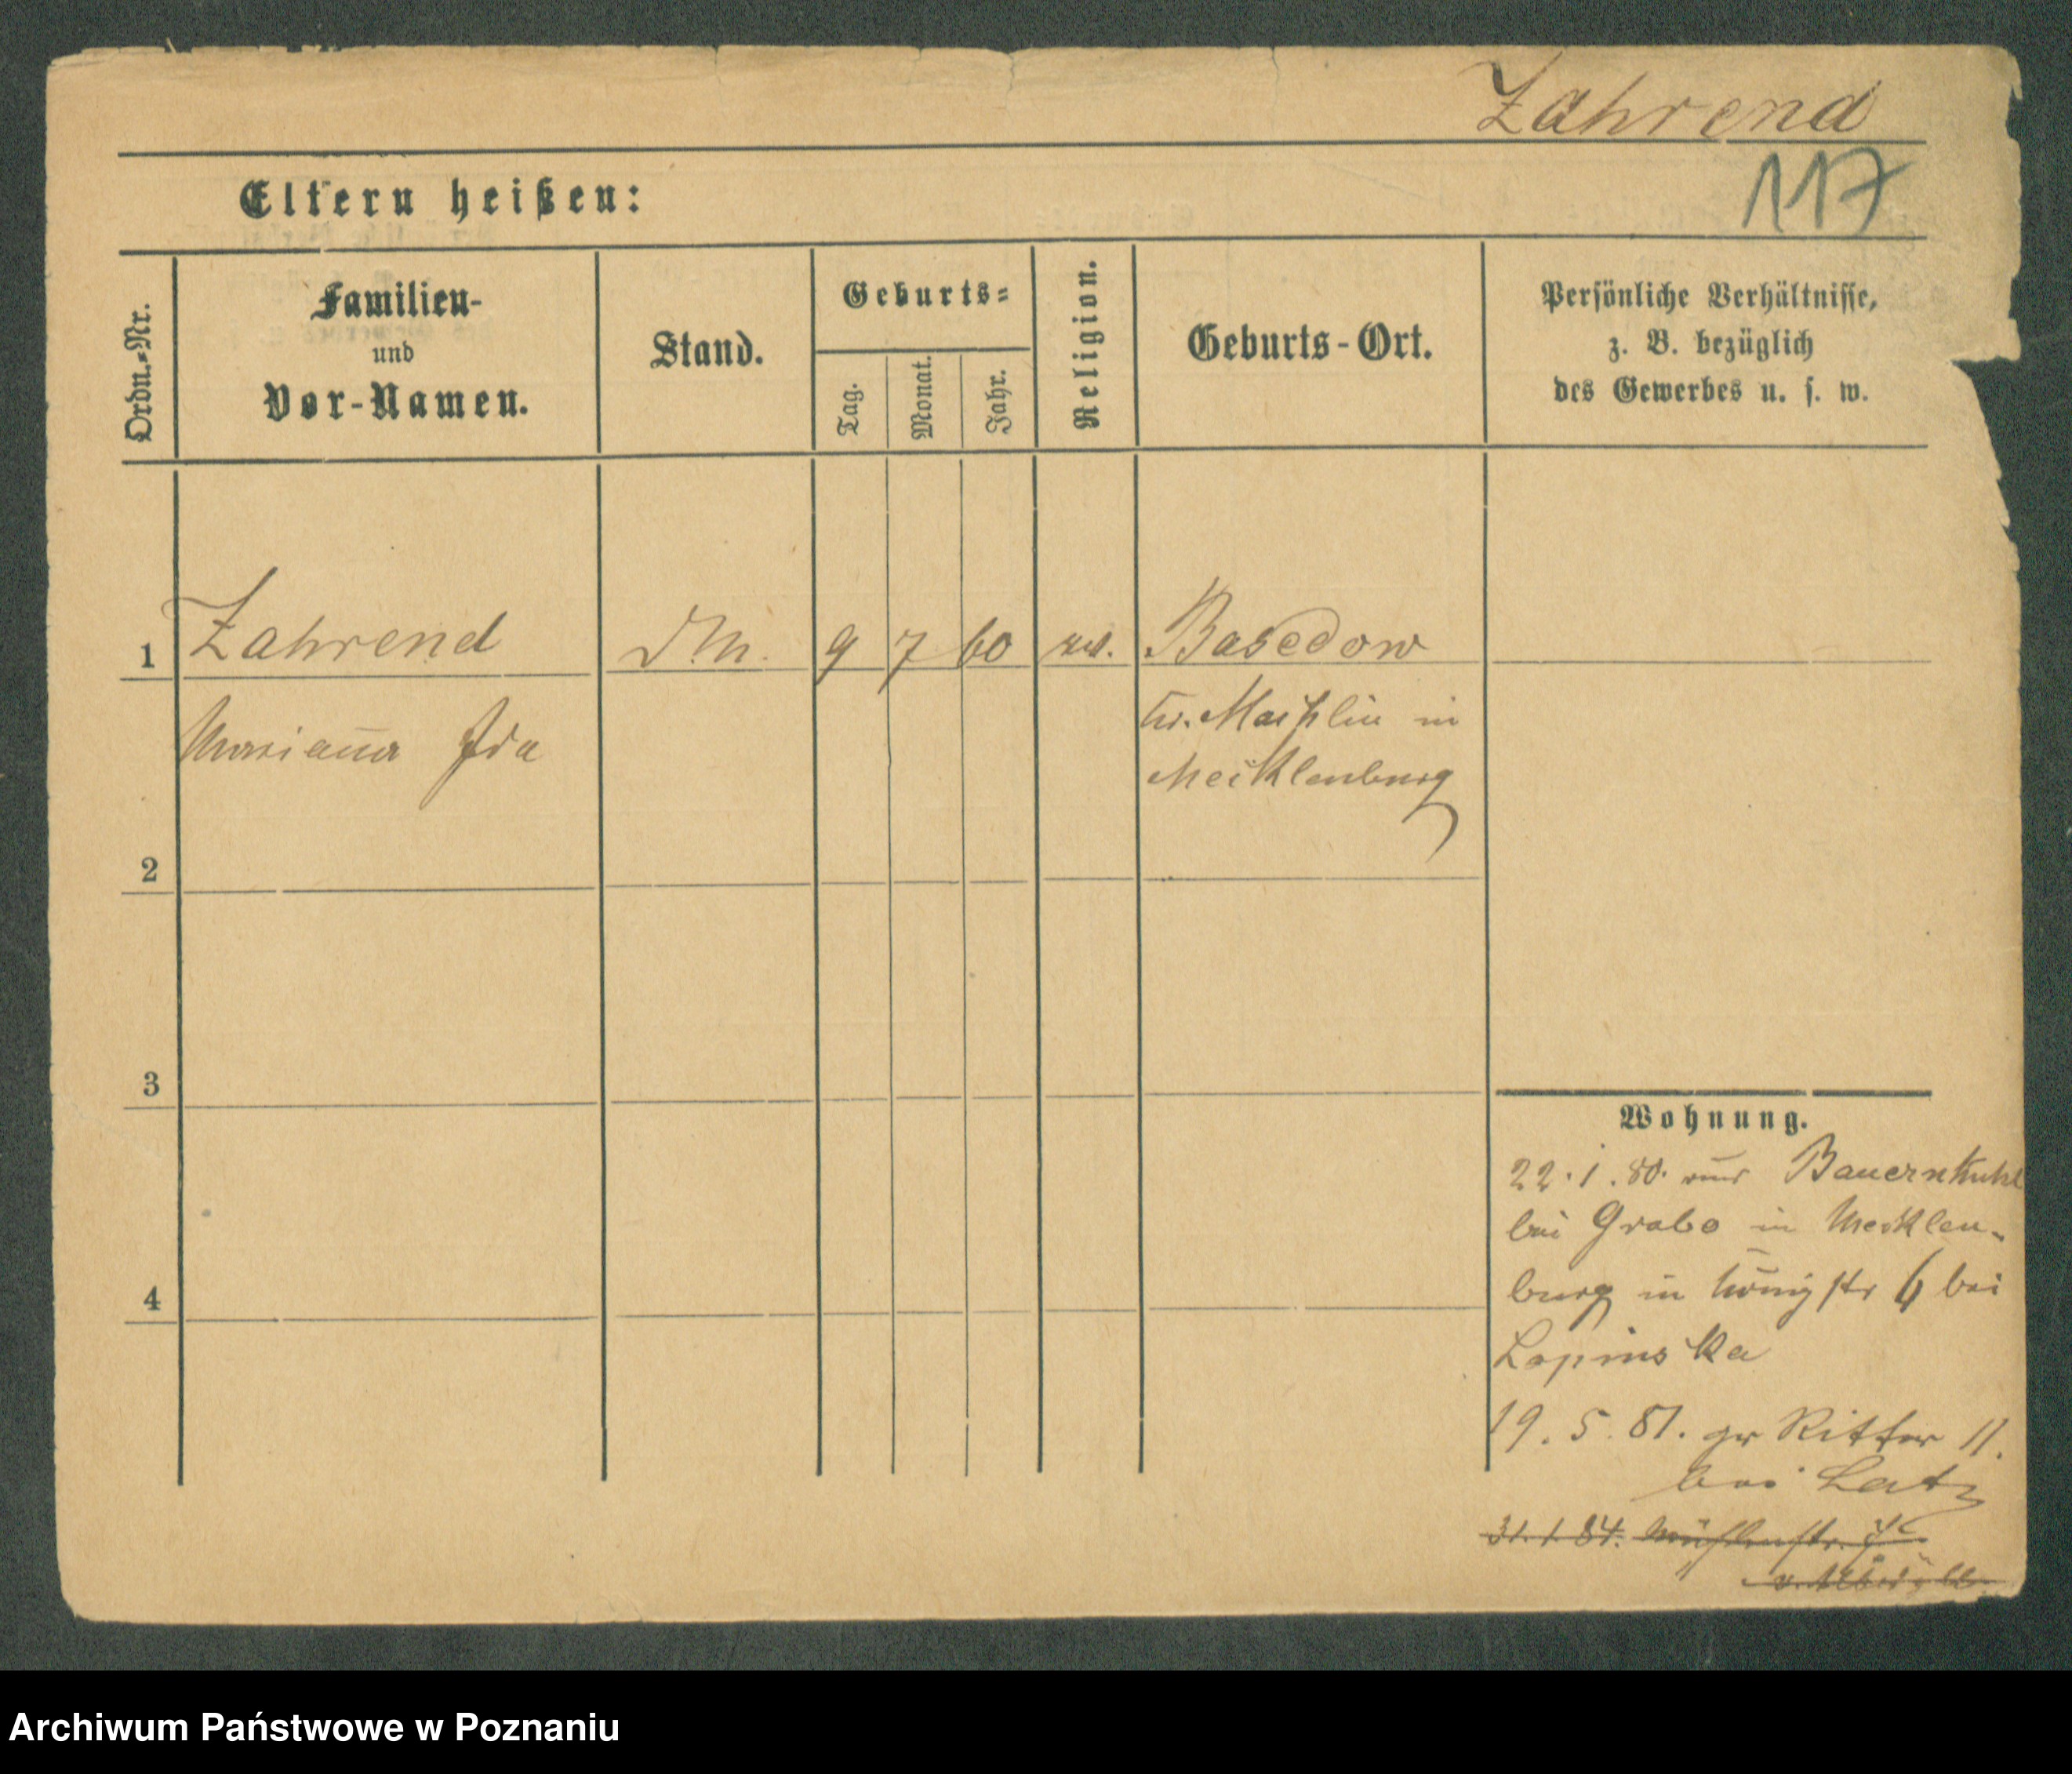 Zahrend
117
Eltern heißen:
Ordn.-Nr.
Familien-
und
Vor-Namen.
Stand.
Geburts-
Tag.
Monat.
Jahr.
Religion.
Geburts-Ort.
Persönliche Verhältnisse,
z. B. bezüglich
des Gewerbes u. s. w.
1 Zahrend 9 7 60 Basedow
Mariana Ida
Kr. in
Mecklenburg
2
3
4
Wohnung.
22. 1. 80. aus Bauernkuhl
bei Grabo in Mecklen-
burg in Königstr 6 bei
Lopinska
19. 5. 81. gr Ritter 11.
bei Latz
31. 1. 84. Mühlenstr.
Archiwum Państwowe w Poznaniu